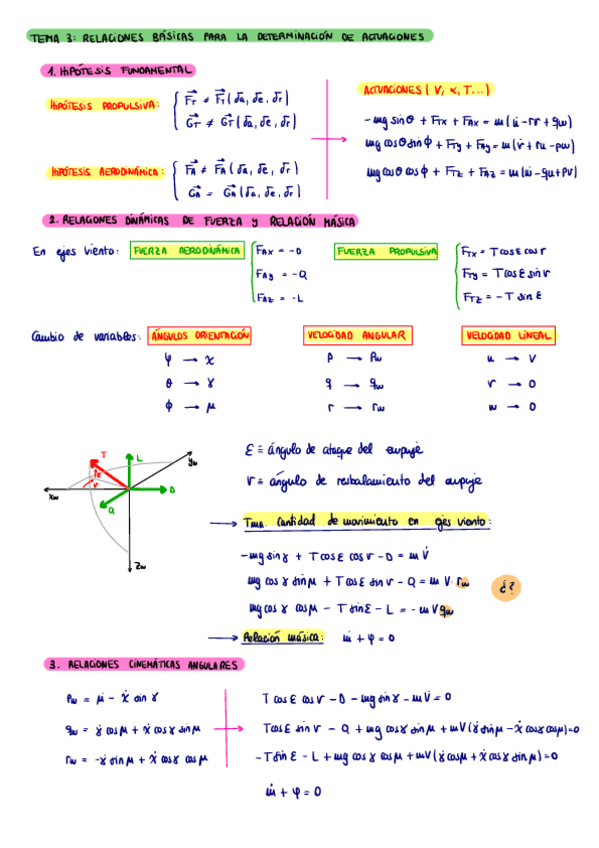 TEMA 3: RELACIONES BÁSICAS PARA LA DETERMINACIÓN DE ACTUACIONES
1. HIPÓTESIS FUNDAMENTAL
HIPÓTESIS PROPULSIVA:
F⃗_T ≠ F⃗_T (δa, δe, δr)
G⃗_T ≠ G⃗_T (δa, δe, δr)
HIPÓTESIS AERODINÁMICA:
F⃗_A ≠ F⃗_A (δa, δe, δr)
G⃗_A = G⃗_A (δa, δe, δr)
ACTUACIONES (V, α, T...)
-mg sinθ + F_Tx + F_Ax = m(u̇ - rv + qw)
mg cosθ sinΦ + F_Ty + F_Ay = m(v̇ + ru - pw)
mg cosθ cosΦ + F_Tz + F_Az = m(ẇ - qu + pv)
2. RELACIONES DINÁMICAS DE FUERZA Y RELACIÓN MÁSICA
En ejes viento:
FUERZA AERODINÁMICA
F_Ax = -D
F_Ay = -Q
F_Az = -L
FUERZA PROPULSIVA
F_Tx = T cos ε cos ν
F_Ty = T cos ε sin ν
F_Tz = - T sin ε
Cambio de variables:
ÁNGULOS ORIENTACIÓN
ψ → χ
θ → γ
ϕ → μ
VELOCIDAD ANGULAR
p → p_w
q → q_w
r → r_w
VELOCIDAD LINEAL
u → V
v → 0
w → 0
T
L
y_w
ε
ν
x_w
D
Q
z_w
ε ≡ ángulo de ataque del empuje
ν ≡ ángulo de resbalamiento del empuje
→ Tma. Cantidad de movimiento en ejes viento:
-mg sin γ + T cos ε cos ν - D = m V̇
mg cos γ sin μ + T cos ε sin ν - Q = m V · r_w
mg cos γ cos μ - T sin ε - L = - m V q_w
¿?
→ Relación másica: ṁ + φ = 0
3. RELACIONES CINEMÁTICAS ANGULARES
p_w = μ̇ - χ̇ sin γ
q_w = γ̇ cos μ + χ̇ cos γ sin μ
r_w = -γ̇ sin μ + χ̇ cos γ cos μ
T cos ε cos ν - D - mg sin γ - m V̇ = 0
T cos ε sin ν - Q + mg cos γ sin μ + mV(γ̇ sin μ - χ̇ cos γ cos μ) = 0
-T sin ε - L + mg cos γ cos μ + mV(γ̇ cos μ + χ̇ cos γ sin μ) = 0
ṁ + φ = 0